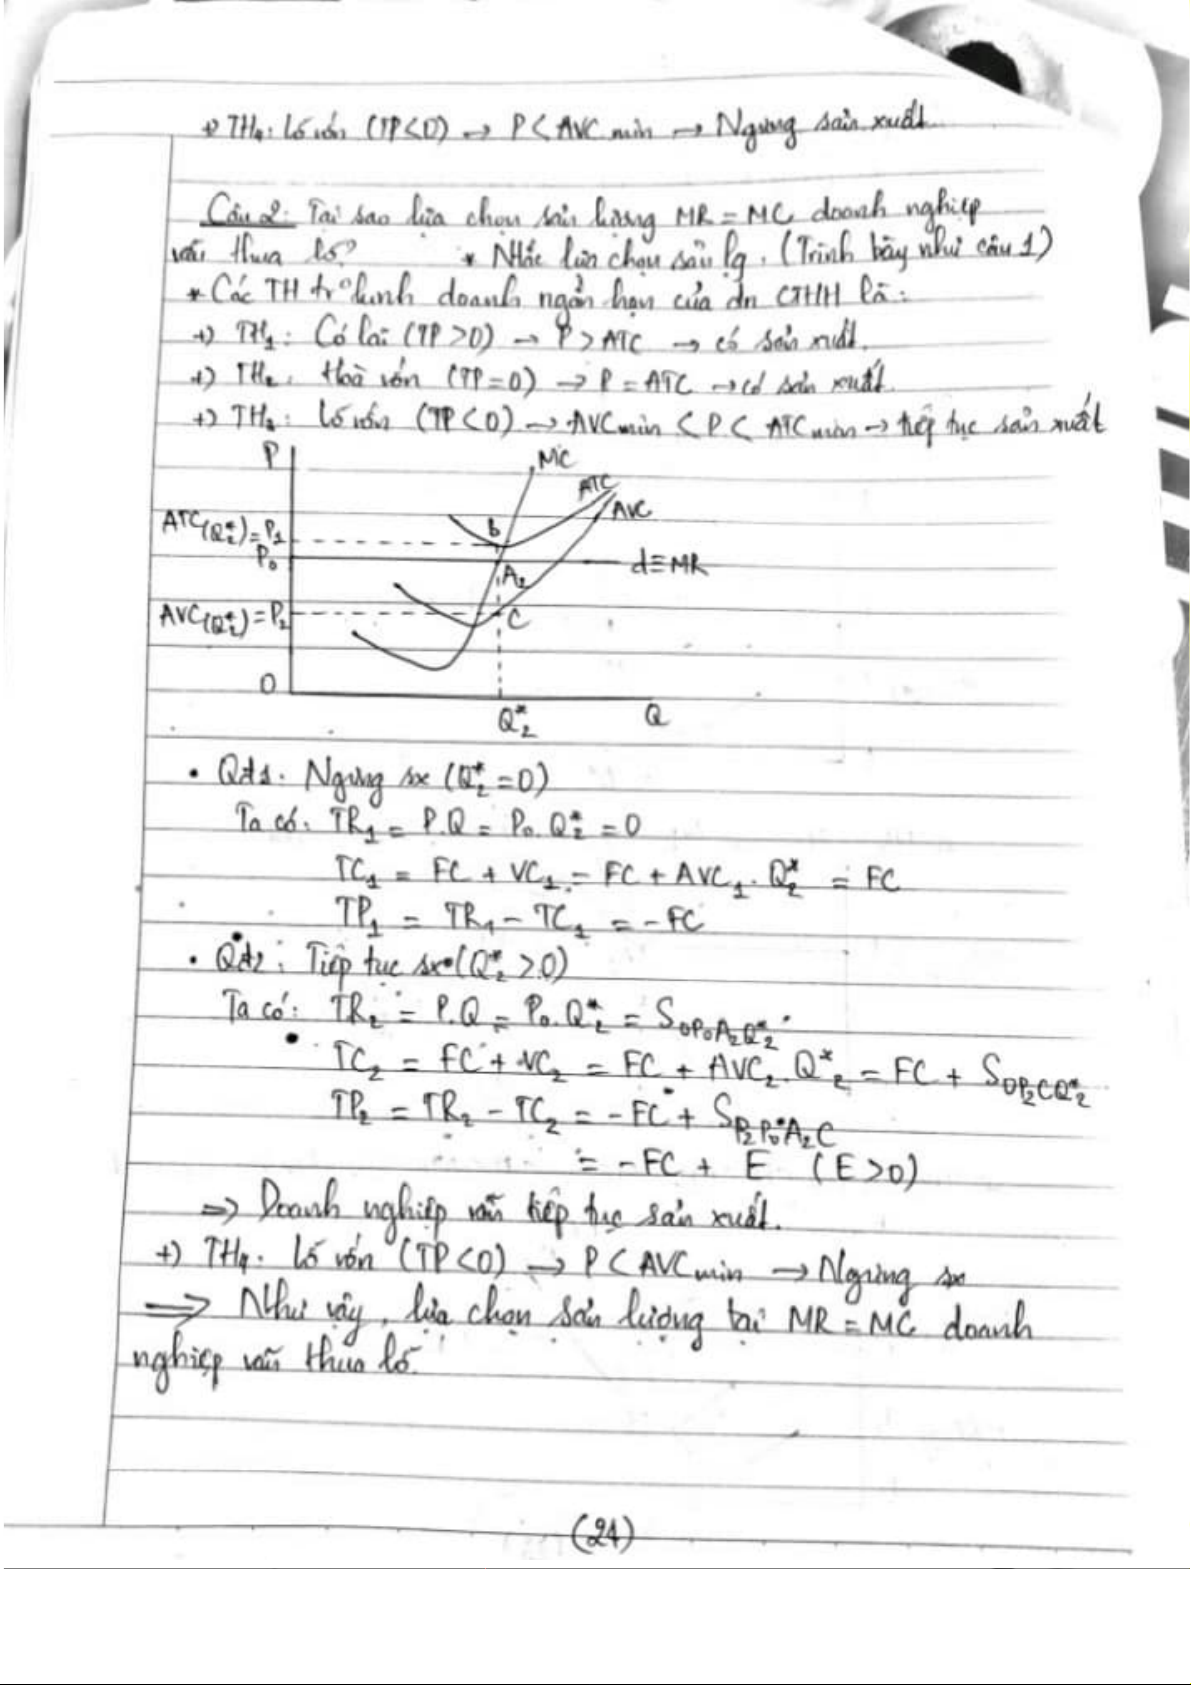 +) TH4: Lỗ vốn (TP<0) → P < AVC min → Ngưng sản xuất
Câu 2: Tại sao lựa chọn sản lượng MR = MC doanh nghiệp
vẫn thua lỗ? * Nhắc lựa chọn sản lg. (Trình bày như câu 1)
* Các TH trg kinh doanh ngắn hạn của dn CTHH là:
+) TH1: Có lãi (TP>0) → P > ATC → có sản xuất.
+) TH2: Hoà vốn (TP=0) → P = ATC → có sản xuất.
+) TH3: Lỗ vốn (TP<0) → AVCmin < P < ATCmin → tiếp tục sản xuất
P MC
ATC
AVC
ATC(Q*2) = P1 B
P0 A2 d≡MR
AVC(Q*2) = P2 C
0
Q*2 Q
• Qđ1: Ngưng sx (Q*2 = 0)
Ta có: TR1 = P.Q = P0.Q*2 = 0
TC1 = FC + VC1 = FC + AVC1. Q*2 = FC
TP1 = TR1 - TC1 = -FC
• Qđ2: Tiếp tục sx (Q*2 > 0)
Ta có: TR2 = P.Q = P0.Q*2 = S0P0A2Q*2
TC2 = FC + VC2 = FC + AVC2.Q*2 = FC + S0P2CQ*2
TP2 = TR2 - TC2 = -FC + SP2P0A2C
= -FC + E (E>0)
=> Doanh nghiệp vẫn tiếp tục sản xuất.
+) TH4: Lỗ vốn (TP<0) → P < AVCmin → Ngưng sx
=> Như vậy, lựa chọn sản lượng tại MR = MC doanh
nghiệp vẫn thua lỗ.
(24)